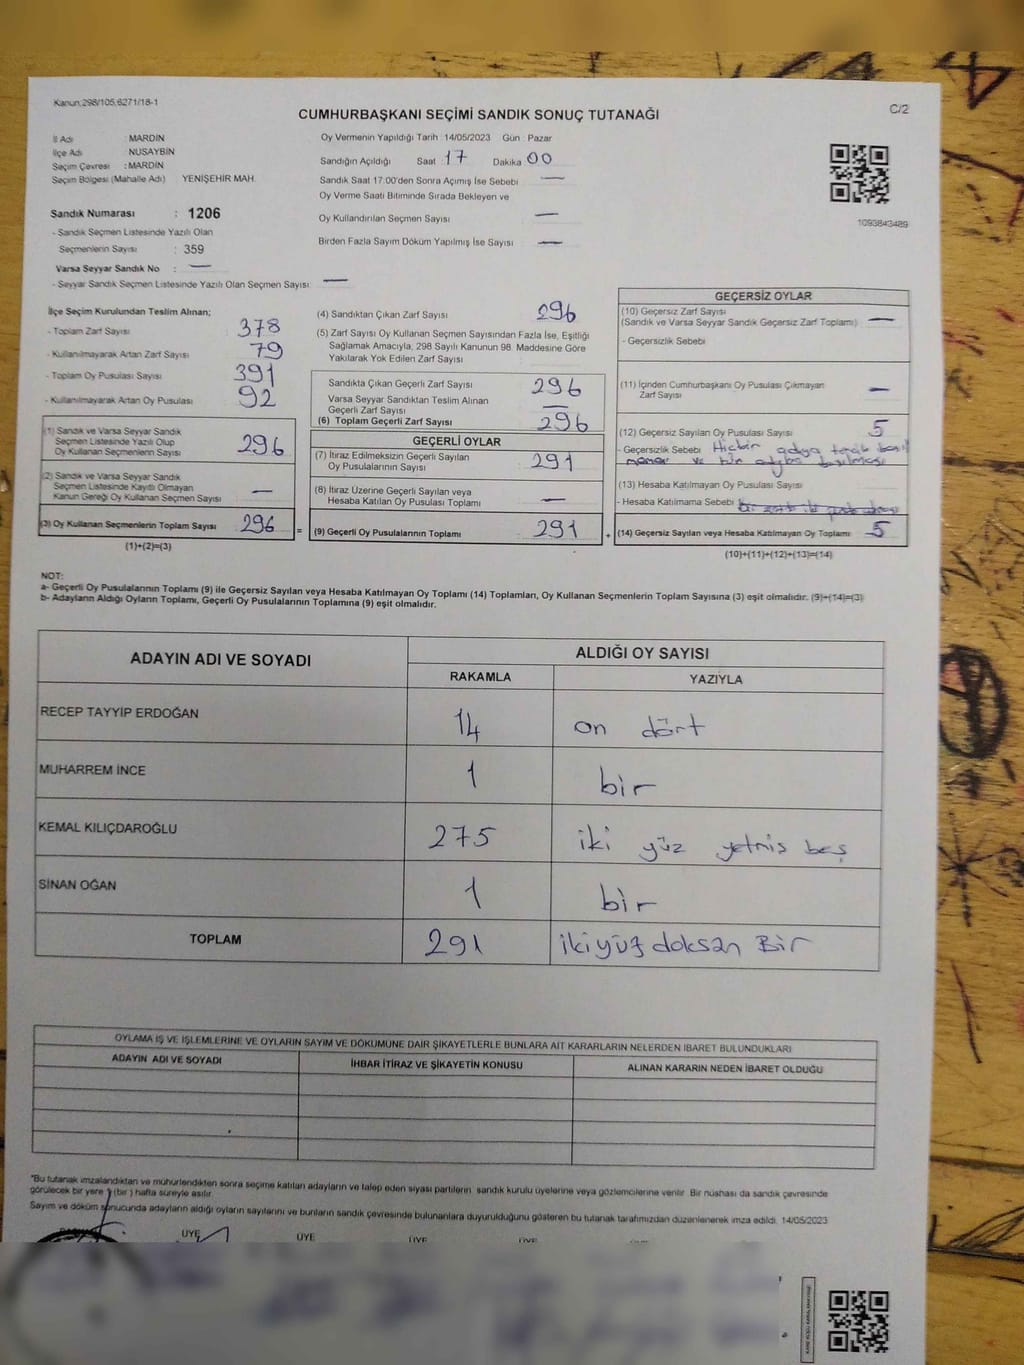 Kanun:298/105,6271/18-1
C/2
CUMHURBAŞKANI SEÇİMİ SANDIK SONUÇ TUTANAĞI
İl Adı : MARDİN
İlçe Adı : NUSAYBİN
Seçim Çevresi : MARDİN
Seçim Bölgesi (Mahalle Adı) YENİŞEHİR MAH.
Sandık Numarası : 1206
- Sandık Seçmen Listesinde Yazılı Olan
Seçmenlerin Sayısı : 359
Varsa Seyyar Sandık No : —
- Seyyar Sandık Seçmen Listesinde Yazılı Olan Seçmen Sayısı: —
Oy Vermenin Yapıldığı Tarih : 14/05/2023 Gün : Pazar
Sandığın Açıldığı Saat 17 Dakika 00
Sandık Saat 17:00'den Sonra Açımış İse Sebebi —
Oy Verme Saati Bitiminde Sırada Bekleyen ve
Oy Kullandırılan Seçmen Sayısı —
Birden Fazla Sayım Döküm Yapılmış İse Sayısı —
1093843489
İlçe Seçim Kurulundan Teslim Alınan;
- Toplam Zarf Sayısı 378
- Kullanılmayarak Artan Zarf Sayısı 79
- Toplam Oy Pusulası Sayısı 391
- Kullanılmayarak Artan Oy Pusulası 92
(1) Sandık ve Varsa Seyyar Sandık
Seçmen Listesinde Yazılı Olup
Oy Kullanan Seçmenlerin Sayısı 296
(2) Sandık ve Varsa Seyyar Sandık
Seçmen Listesinde Kayıtlı Olmayan
Kanun Gereği Oy Kullanan Seçmen Sayısı —
(3) Oy Kullanan Seçmenlerin Toplam Sayısı 296 =
(1)+(2)=(3)
(4) Sandıktan Çıkan Zarf Sayısı 296
(5) Zarf Sayısı Oy Kullanan Seçmen Sayısından Fazla İse, Eşitliği
Sağlamak Amacıyla, 298 Sayılı Kanunun 98. Maddesine Göre
Yakılarak Yok Edilen Zarf Sayısı :
Sandıkta Çıkan Geçerli Zarf Sayısı 296
Varsa Seyyar Sandıktan Teslim Alınan
Geçerli Zarf Sayısı —
(6) Toplam Geçerli Zarf Sayısı 296
GEÇERLİ OYLAR
(7) İtiraz Edilmeksizin Geçerli Sayılan
Oy Pusulalarının Sayısı 291
(8) İtiraz Üzerine Geçerli Sayılan veya
Hesaba Katılan Oy Pusulası Toplamı —
(9) Geçerli Oy Pusulalarının Toplamı 291 +
GEÇERSİZ OYLAR
(10) Geçersiz Zarf Sayısı
(Sandık ve Varsa Seyyar Sandık Geçersiz Zarf Toplamı) —
- Geçersizlik Sebebi
(11) İçinden Cumhurbaşkanı Oy Pusulası Çıkmayan
Zarf Sayısı —
(12) Geçersiz Sayılan Oy Pusulası Sayısı 5
- Geçersizlik Sebebi Hiçbir
ve
(13) Hesaba Katılmayan Oy Pusulası Sayısı
- Hesaba Katılmama Sebebi
(14) Geçersiz Sayılan veya Hesaba Katılmayan Oy Toplamı 5
(10)+(11)+(12)+(13)=(14)
NOT:
a- Geçerli Oy Pusulalarının Toplamı (9) ile Geçersiz Sayılan veya Hesaba Katılmayan Oy Toplamı (14) Toplamları, Oy Kullanan Seçmenlerin Toplam Sayısına (3) eşit olmalıdır. (9)+(14)=(3)
b- Adayların Aldığı Oyların Toplamı, Geçerli Oy Pusulalarının Toplamına (9) eşit olmalıdır.
ADAYIN ADI VE SOYADI ALDIĞI OY SAYISI
RAKAMLA YAZIYLA
RECEP TAYYİP ERDOĞAN 14 on dört
MUHARREM İNCE 1 bir
KEMAL KILIÇDAROĞLU 275 iki yüz yetmis beş
SİNAN OĞAN 1 bir
TOPLAM 291 ikiyüz doksan Bir
OYLAMA İŞ VE İŞLEMLERİNE VE OYLARIN SAYIM VE DÖKÜMÜNE DAİR ŞİKAYETLERLE BUNLARA AİT KARARLARIN NELERDEN İBARET BULUNDUKLARI
ADAYIN ADI VE SOYADI İHBAR İTİRAZ VE ŞİKAYETİN KONUSU ALINAN KARARIN NEDEN İBARET OLDUĞU
"Bu tutanak imzalandıktan ve mühürlendikten sonra seçime katılan adayların ve talep eden siyasi partilerin sandık kurulu üyelerine veya gözlemcilerine verilir. Bir nüshası da sandık çevresinde
görülecek bir yere 1 (bir) hafta süreyle asılır.
Sayım ve döküm sonucunda adayların aldığı oyların sayılarını ve bunların sandık çevresinde bulunanlara duyurulduğunu gösteren bu tutanak tarafımızdan düzenlenerek imza edildi. 14/05/2023
ÜYE ÜYE ÜYE ÜYE